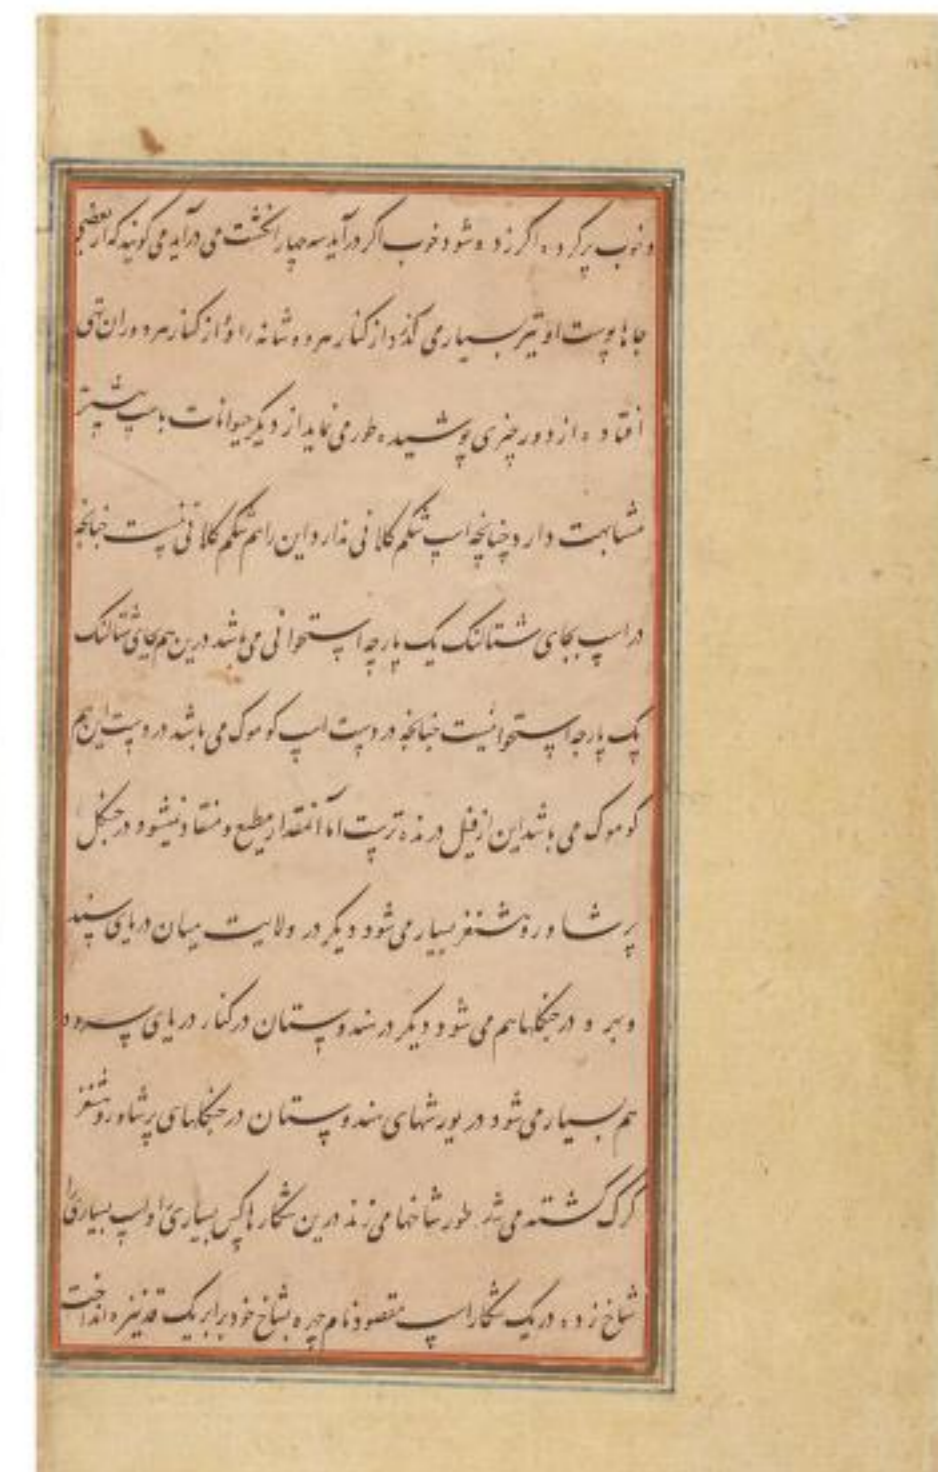 و خوب پر کرده اگر زده شود خوب اگر در آید سه چهار انگشت می در آید می گویند که از بعضی
جاها پوست او تیر بسیار می گذرد از کنار هر دو شانه او و از کنار هر دو ران تهی
افتاده از دور چیزی پوشیده طور می نماید از دیگر حیوانات باسپ بیشتر
مشابهت دارد چنانچه اسپ شکم کلانی ندارد این را هم شکم کلانی نیست چنانچه
در اسپ بجای شتالنک یک پارچه استخوانی می باشد درین هم بجای شتالنک
یک پارچه استخوانیست چنانچه در دست اسپ کوموک می باشد در دست این هم
کوموک می باشد این از فیل درنده ترست اما آنمقدار مطیع و منقاد نمیشود در جنکل
پرشاور و هشنغر بسیار می شود دیگر در ولایت میان دریای سند
و بهره در جنکلها هم می شود دیگر در هندوستان در کنار دریای سرود
هم بسیار می شود در یورشهای هندوستان در جنکلهای پرشاور و هشنغر
کرک کشته می شد طور شاخها می زند درین شکارها کس بسیاری را و اسپ بسیاری را
شاخ زده در یک شکار اسپ مقصود نام چهره بشاخ خود برابر یک قد نیزه انداخت